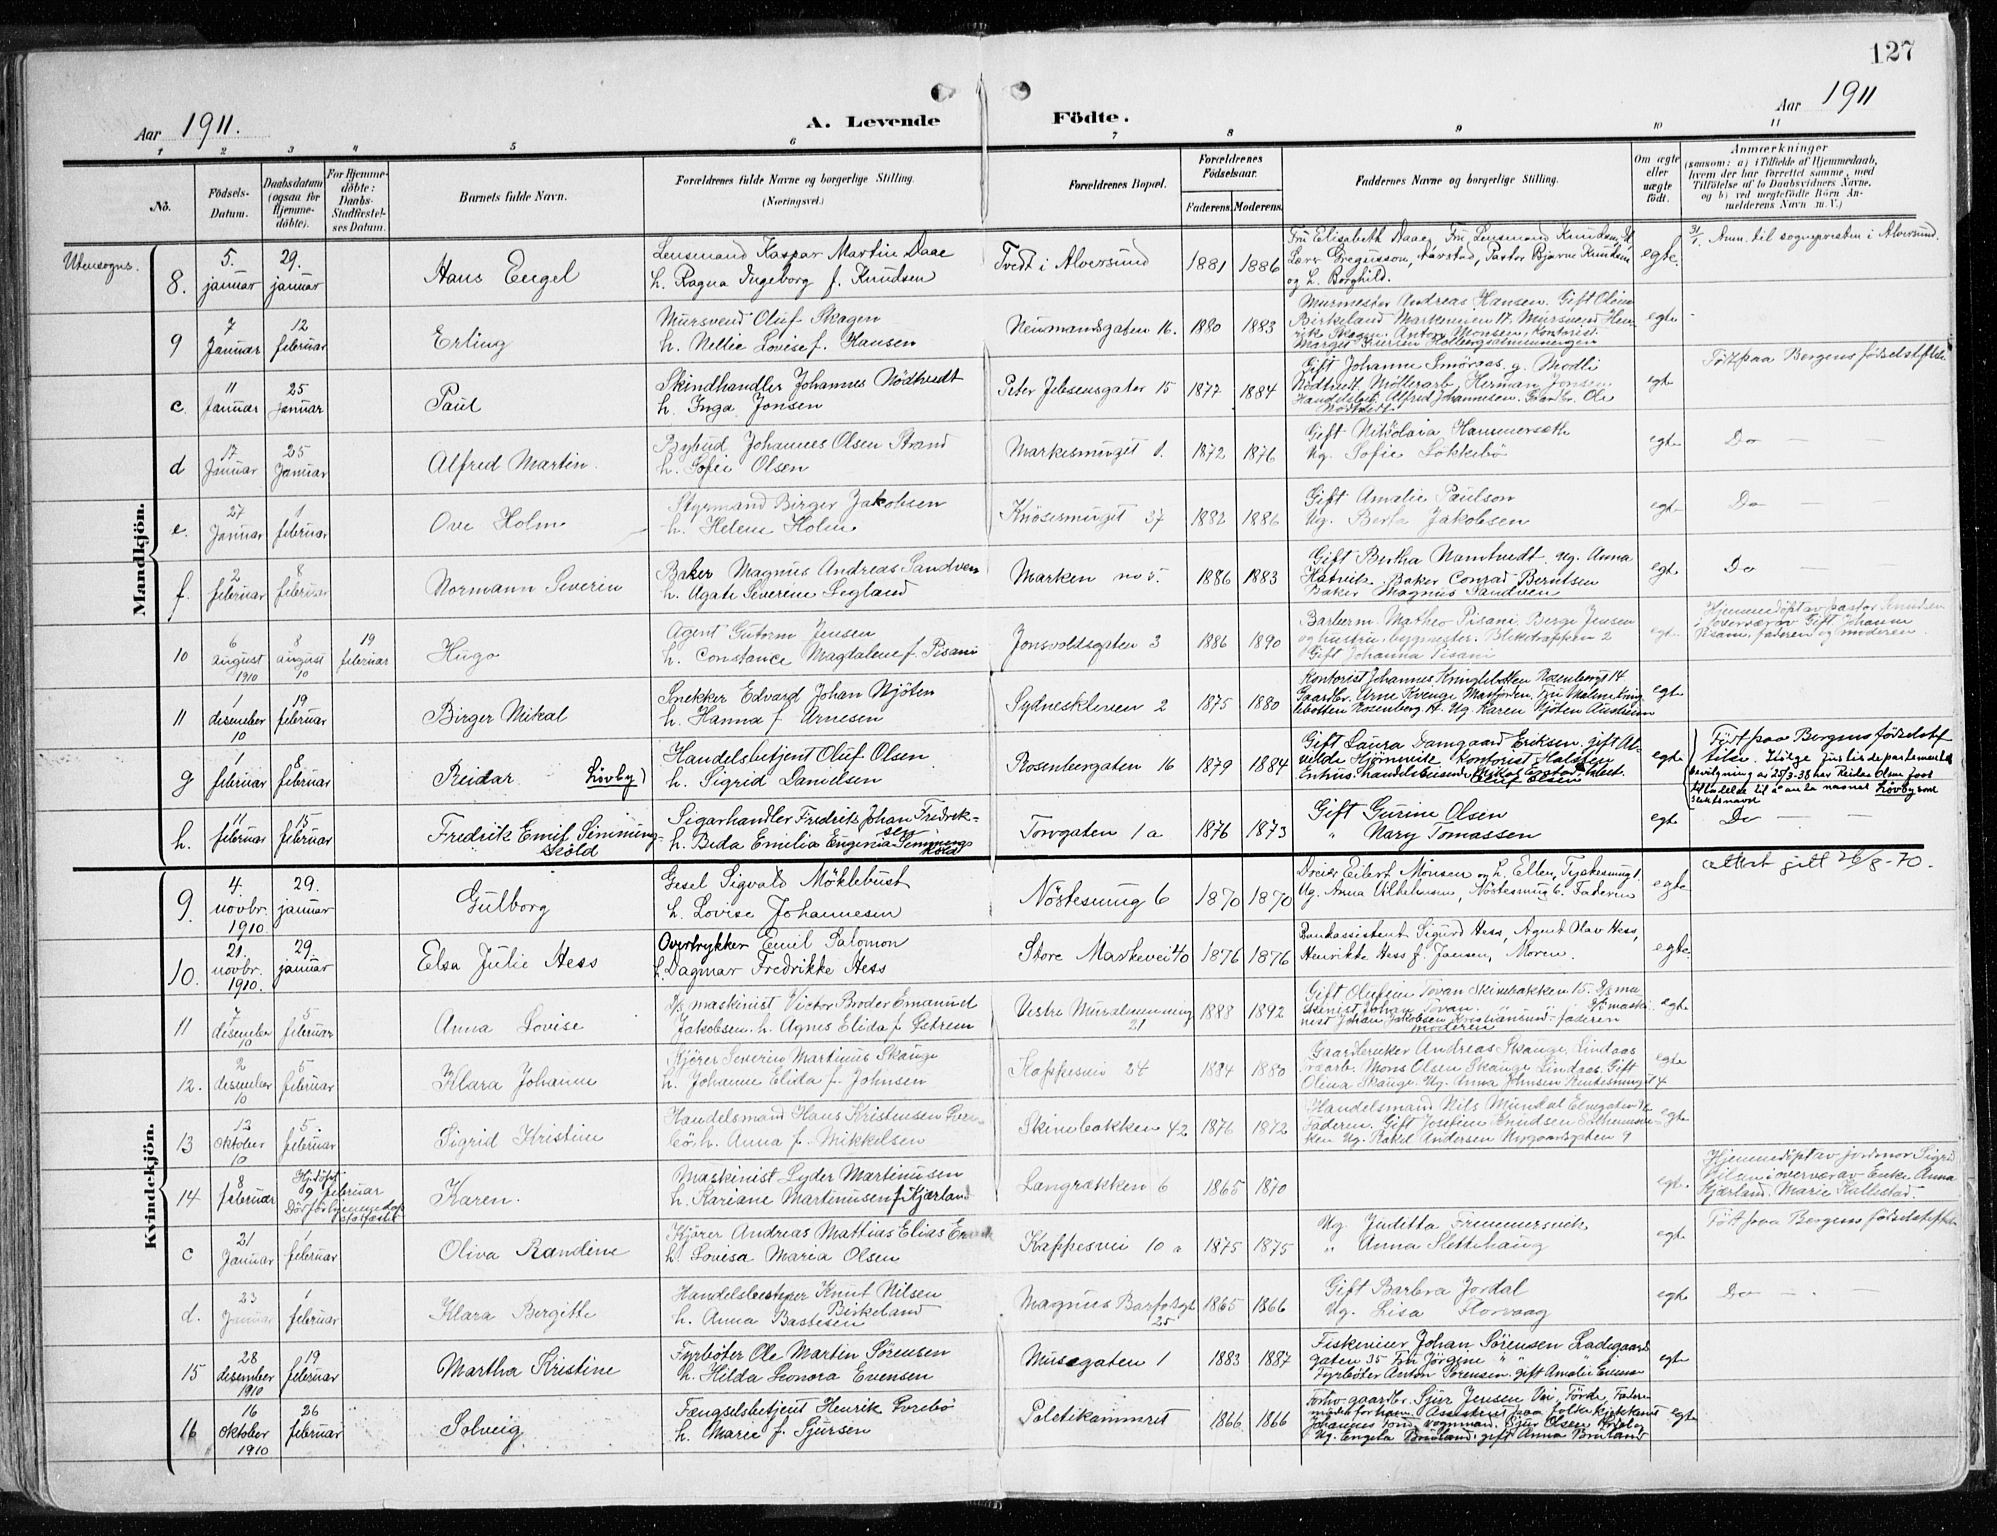 127
Aar 1911.
A. Levende Födte.
Aar 1911
1 2 3 4 5 6 7 8 9 10 11
No.
Födsels-
Datum.
Daabsdatum
(ogsaa for
Hjemme-
döbte).
For Hjemme-
döbte:
Daabs-
Stadfæstel-
ses Datum.
Barnets fulde Navn.
Forældrenes fulde Navne og borgerlige Stilling.
(Næringsvei.)
Forældrenes Bopæl.
Forældrenes
Födselsaar.
Faderens. Moderens.
Faddernes Navne og borgerlige Stilling.
Om ægte
eller
uægte
født.
Anmærkninger
(saasom: a) i Tilfælde af Hjemmedaab,
hvem der har forrettet samme, med
Tilföielse af to Daabsvidners Navne,
og b) ved uægtefödte Börn An-
melderens Navn m. V.)
Mandkjön.
Utensogns.
8.
5.
januar
29.
januar
Hans Engel
Lensmand Kaspar Martin Daae
h. Ragna Ingeborg f. Knudsen
Tvedt i Alversund
1881 1886
Fru Elisabeth Daae, Fru Lensmand Knudsen,
Lærer Gregusson, Aarstad, Pastor Bjarne Knudsen
og h. Borghild.
egte.
31/1. Anm. til sognepresten i Alversund.
9
7
Januar
12
februar
Erling
Mursvend Oluf Skagen
h. Nellie Lovise f. Hansen
Neumandsgaten 16.
1880 1883
Murmester Andreas Hansen. Gift Oline
Birkeland Markeveien 17. Mursvend Hen-
rik Skagen. Anton Monsen, Kontorist
egte
c
11
Januar
25
januar
Paul
Skindhandler Johannes Nödtvedt
h. Inga Jonsen
Peter Jebsensgater 15
1877 1884
Gift Johanne Smörgas. g. Modli
Nödtvedt. Möllerarb. Herman Jonsen
Handelsbetj. Alfred Johannesen. Gaardbr. Ole
Nödtvedt.
egte
Födt paa Bergens födselstiftelse
d
17
Januar
25
Januar
Alfred Martin.
Bybud Johannes Olsen Strand
h. Sofie Olsen
Markesmuget 1.
1872 1876
Gift Nikolaia Hammersæth
Ug. Sofie Lökkebö
egte
Do — —
e.
27
Januar
1
februar
Ove Holm
Styrmand Birger Jakobsen
h. Helene Holm
Knösesmuget 37
1882 1886
Gift Amalie Paulson
Ug. Berta Jakobsen
egte
Do — —
f.
2
februar
8
februar
Normann Severin
Baker Magnus Andreas Sandven
h. Agate Severine Sigland
Marken no 5.
1886 1883
Gift Bertha Namtvedt. ug. Anna
Hatvik. Baker Conrad Berntsen
Baker Magnus Sandven
egte
Do — —
10
6
august
1910
8
august
10
19
februar
Hugo
Agent Gutorm Jensen
h. Constance Magdalene f. Pisani
Jonsvoldsgaten 3
1886 1890
Barberm. Matheo Pisani. Berge Jensen
og hustru. bygmester. Blekotrappen 2
Gift Johanna Pisani
egte
Hjemmedöpt av pastor Knudsen
i overvær av Gift Johanna
Pisani, faderen og moderen.
11
1
desember
10
19
februar
Birger Mikal
Snekker Edvard Johan Njöten
h. Hanna f. Arnesen
Sydneskleven 2
1875 1880
Kontorist Johannes Kinglebotten Rosenbergt 14
Gaardbr. Arne Kvenge Masfjorden. Fru Malene King-
lebotten Rosenberg 14. Ug. Karen Njöten
egte
g
1
februar
8
februar
Reidar. Lövby)
Handelsbetjent Oluf Olsen
h. Sigrid Danielsen
Rosenberggaten 16
1879 1884
Gift Laura Damgaard Eriksen. gift Al-
vilde Hjörnevik Kontorist Halstein
Oluf Olsen
egte
Födt paa Bergens födselstif
telse. Ifölge justisdepartementets
bevilgning av 25/3-38 har Reidar Olsen faat
tilladelse til å anta navnet Lövby som
slektsnavn
h.
11
februar
15
februar
Fredrik Emil Simming-
sköld
Sigarhandler Fredrik Johan Fredrik-
sen
h. Beda Emilia Eugenia Simmings-
köld
Torvgaten 1 a
1876 1873
Gift Gurine Olsen
" Mary Tomassen
egte
Do — —
Kvindekjön.
9.
4.
novbr.
1910
29.
januar
Gulborg
Gesel Sigvald Möklebust
h. Lovise Johannesen
Nöstesmug 6
1870 1870
Dreier Eilert Monsen og h. Ellen, Tyskesmug 1.
Ug. Anna Vilhelmsen, Nöstesmug 6. Faderen
egte
attest gitt 26/8-70.
10.
21
novbr.
1910.
29.
januar
Elsa Julie Hess
Overtrykker Emil Salomon
h. Dagmar Fredrikke Hess
Store Markevei 40
1876 1876
Bankassistent Sigurd Hess, Agent Olav Hess,
Henrikke Hess f. Jansen, Moren.
egte.
11
7
desember
10
5
februar
Anna Lovise
D/s maskinist Victor Broder Emanuel
Jakobsen. h. Agnes Elida f. Getrem
Vestre Muralmenning
21
1883 1892
Gift Olufine Tovan Skivebakken 15. D/s ma-
skinist Johan Tovan. D/s maski-
nist Johan Jakobsen Kristiansund - faderen
moderen
egte
12.
2
desember
10
5
februar
Klara Johanne
Kjörer Severin Martinus Skauge
h. Johanne Elida f. Johnsen
Kappesvei 24
1884 1880
Gaardbruker Andreas Skauge, Lindaas
Mons Olsen Skauge Lindaas. Gift
Olina Skauge. Ug. Anna Johnsen
egte
13
12
oktober
10
5.
februar
Sigrid Kristine
Handelsmand Hans Kristensen
h. Anna f. Mikkelsen
Skivebakken 42
1876 1872
Handelsmand Nils Mundal
Faderen. Gift Josefine Knudsen
Ug. Rakel Andersen Nygaardsgaten 9
egte
14
8
februar
Hj.döpt
9 februar
Karen.
Maskinist Lyder Martinusen
h. Kariane Martinusen f. Kjærland
Langrækken 6
1865 1870
egte.
Hjemmedöpt av jordmor Sigrid
Nilsen i overvær av Enke Anna
Kjærland. Marie Kallestad.
c
21
Januar
1
februar
Oliva Randine
Kjörer Andreas Mattias Elias
h. Lovisa Maria Olsen
Kappesvei 10 a
1875 1875
Ug Judetta Frimmersvik
" Anna Slettehaug
egte
Födt paa Bergens födselstiftelse
d.
23
Januar
1
februar
Klara Bergitte
Handelsbestyrer Knut Nilsen
Birkeland
h. Anna Bastesen
Magnus Barfotsgt
25
1865 1866
Gift Barbra Jordal
Ug. Lisa Florvaag
egte
Do — —
15
28
desember
1910
19
februar
Martha Kristine
Fyrböter Ole Martin Sørensen
h. Hilda Leonora Evensen
Musegaten 1
1883 1887
Fiskeveier Johan Sørensen Ladegaards
gaten 35 Fru Jörgine " "
Fyrböter Anton Sørensen. gift Amalie
egte
16
16
oktober
1910
26
februar
Solveig
Fængselsbetjent Henrik Sorebö
h. Marie f. Sjursen
Politikammret
1866 1866
Forhv. gaardbr. Sjur Jensen Vei, Förde, Faderen
Assistent paa folkekjökkenet
Sjur Olsen
Ug. Engela Bruland, gift Anna Bruland
egte